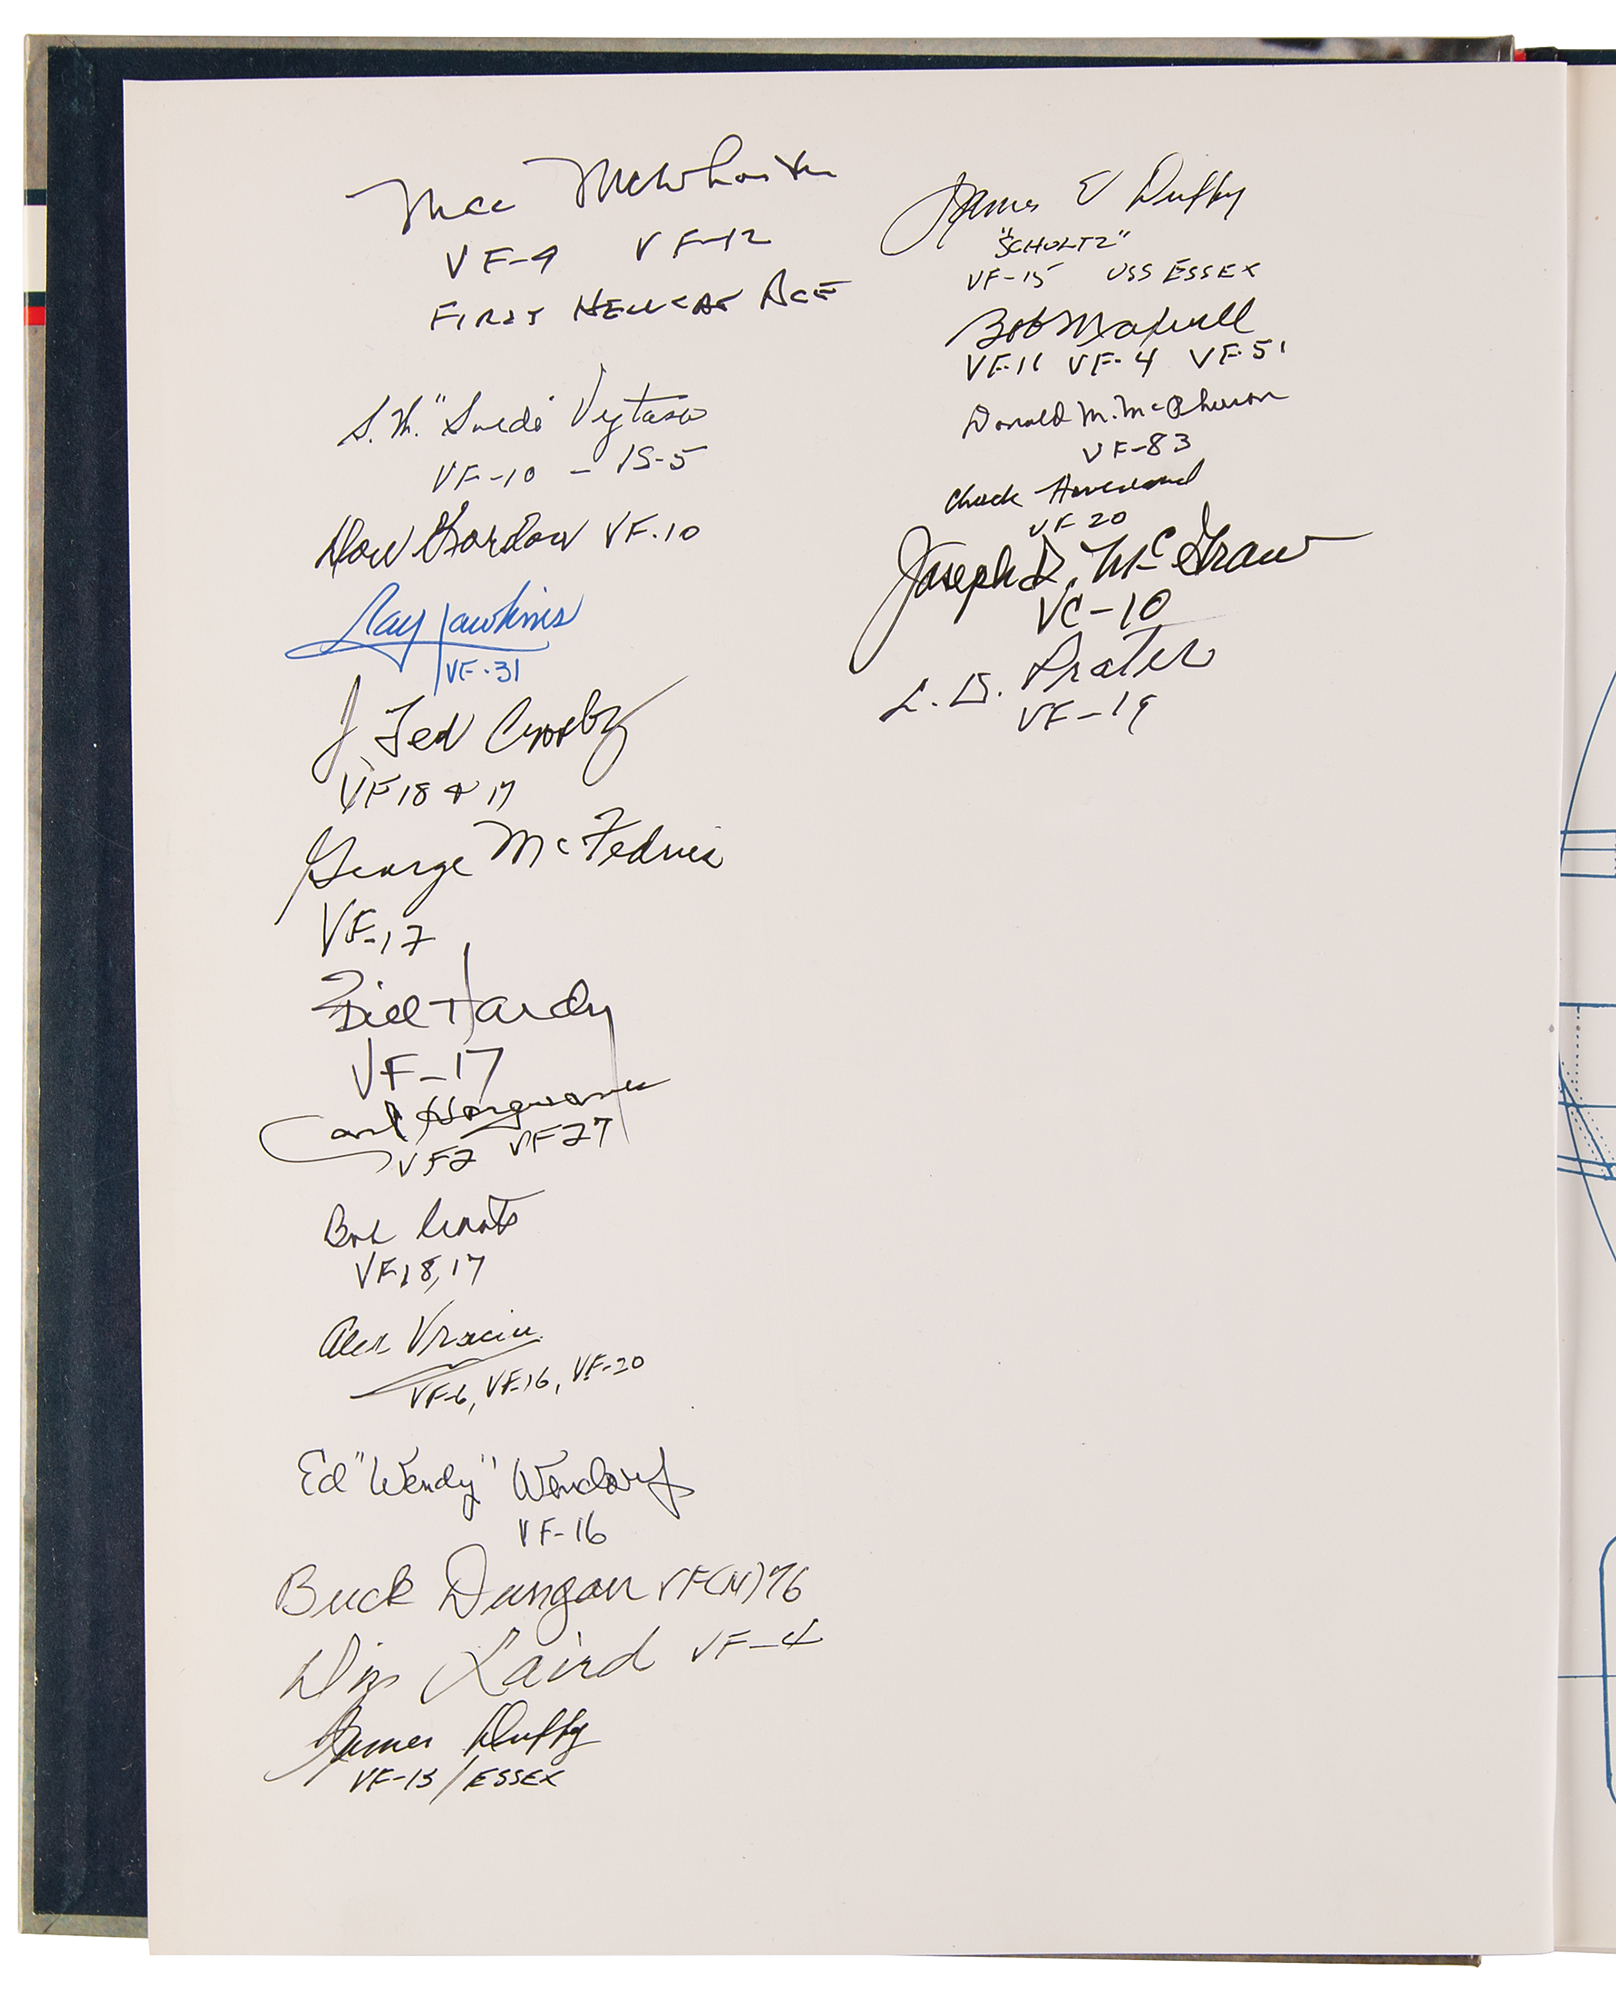 Mac McWhorter
VF-9 VF-12
FIRST HELLCAT ACE
S.W. "Swede" Vejtasa
VF-10 - VS-5
Don Gordon VF-10
Ray Hawkins
VF-31
J Ted Crosby
VF 18 & 17
George McFedries
VF-17
Bill Hardy
VF-17
Carl Hargreaves
VF2 VF27
Bob Coats
VF18,17
Alex Vraciu
VF-6, VF-16, VF-20
Ed "Wendy" Wendorf
VF-16
Buck Dungan VF(N)76
Diz Laird VF-4
James Duffy
VF-15/ESSEX
James E Duffy
"SCHULTZ"
VF-15 USS ESSEX
Bob Maxwell
VF-11 VF-4 VF-51
Donald M. McPherson
VF-83
Chuck Haverland
VF 20
Joseph D. McGraw
VC-10
L. D. Prater
VF-19